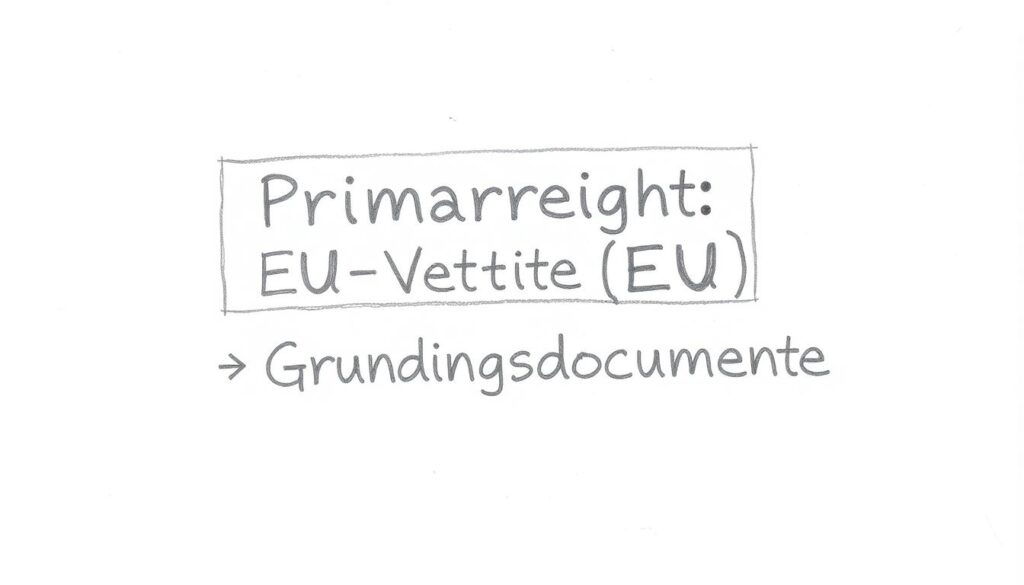 Primarreight:
EU-Vettite (EU)
→ Grundingsdocumente